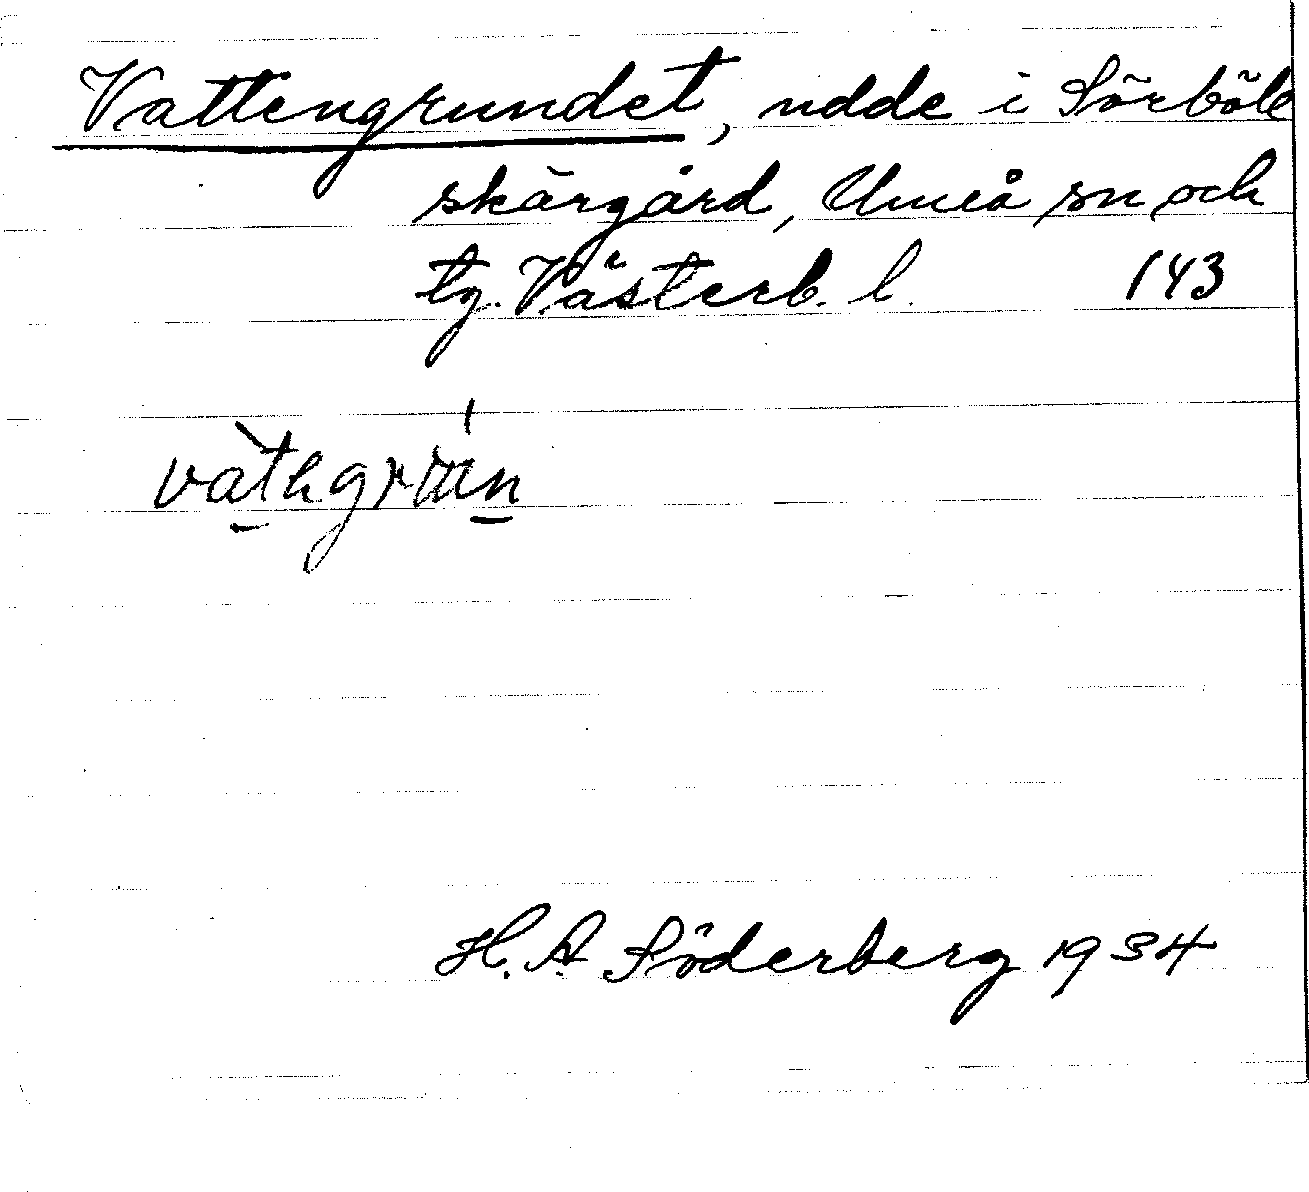 Vattengrundet, udde i Sörböle
skärgård, Umeå sn och
tg. Västerb. l. 143
H. A. Söderberg 1934